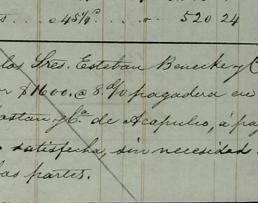 45¼ c. " 520 24
los Sres. Esteban Benecke y C
$1600. @ 8 o/o pagadera en
y Ca. de Acapulco, á pa
satisfecha, sin necesidad
las partes.